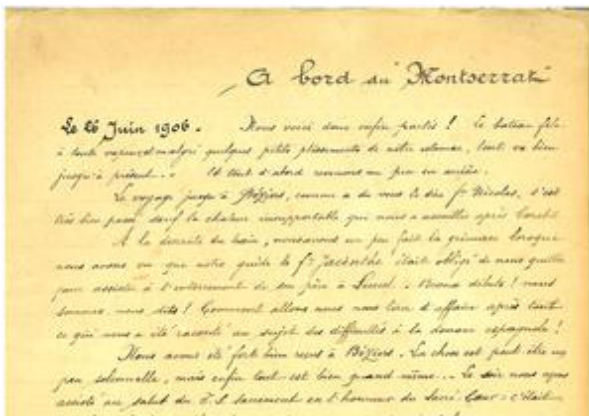 A bord du Montserrat
Le 26 Juin 1906. Nous voici donc enfin partis ! Le bateau file
à toute vapeur et malgré quelques petits plissements de notre estomac, tout va bien
jusqu'à présent... Et tout d'abord revenons un peu en arrière.
Le voyage jusqu'à Béziers, comme a du vous le dire fr Nicolas, s'est
très bien passé sauf la chaleur insupportable qui nous a assaillis après
A la descente du train, nous avons un peu fait la grimace lorsque
nous avons vu que notre guide le fr Jacinthe était obligé de nous quitter
pour assister à l'enterrement de son père à Lunel. débute ! nous
sommes nous dits ! Comment allons nous nous tirer d'affaire après tout
ce qui nous a été raconté au sujet des difficultés à la douane espagnole !
Nous avons été fort bien reçus à Béziers. La chose est peut-être un
peu solennelle, mais enfin tout est bien quand même. Le soir nous avons
assisté au salut du T. S. Sacrement en l'honneur du Sacré Cœur : c'était